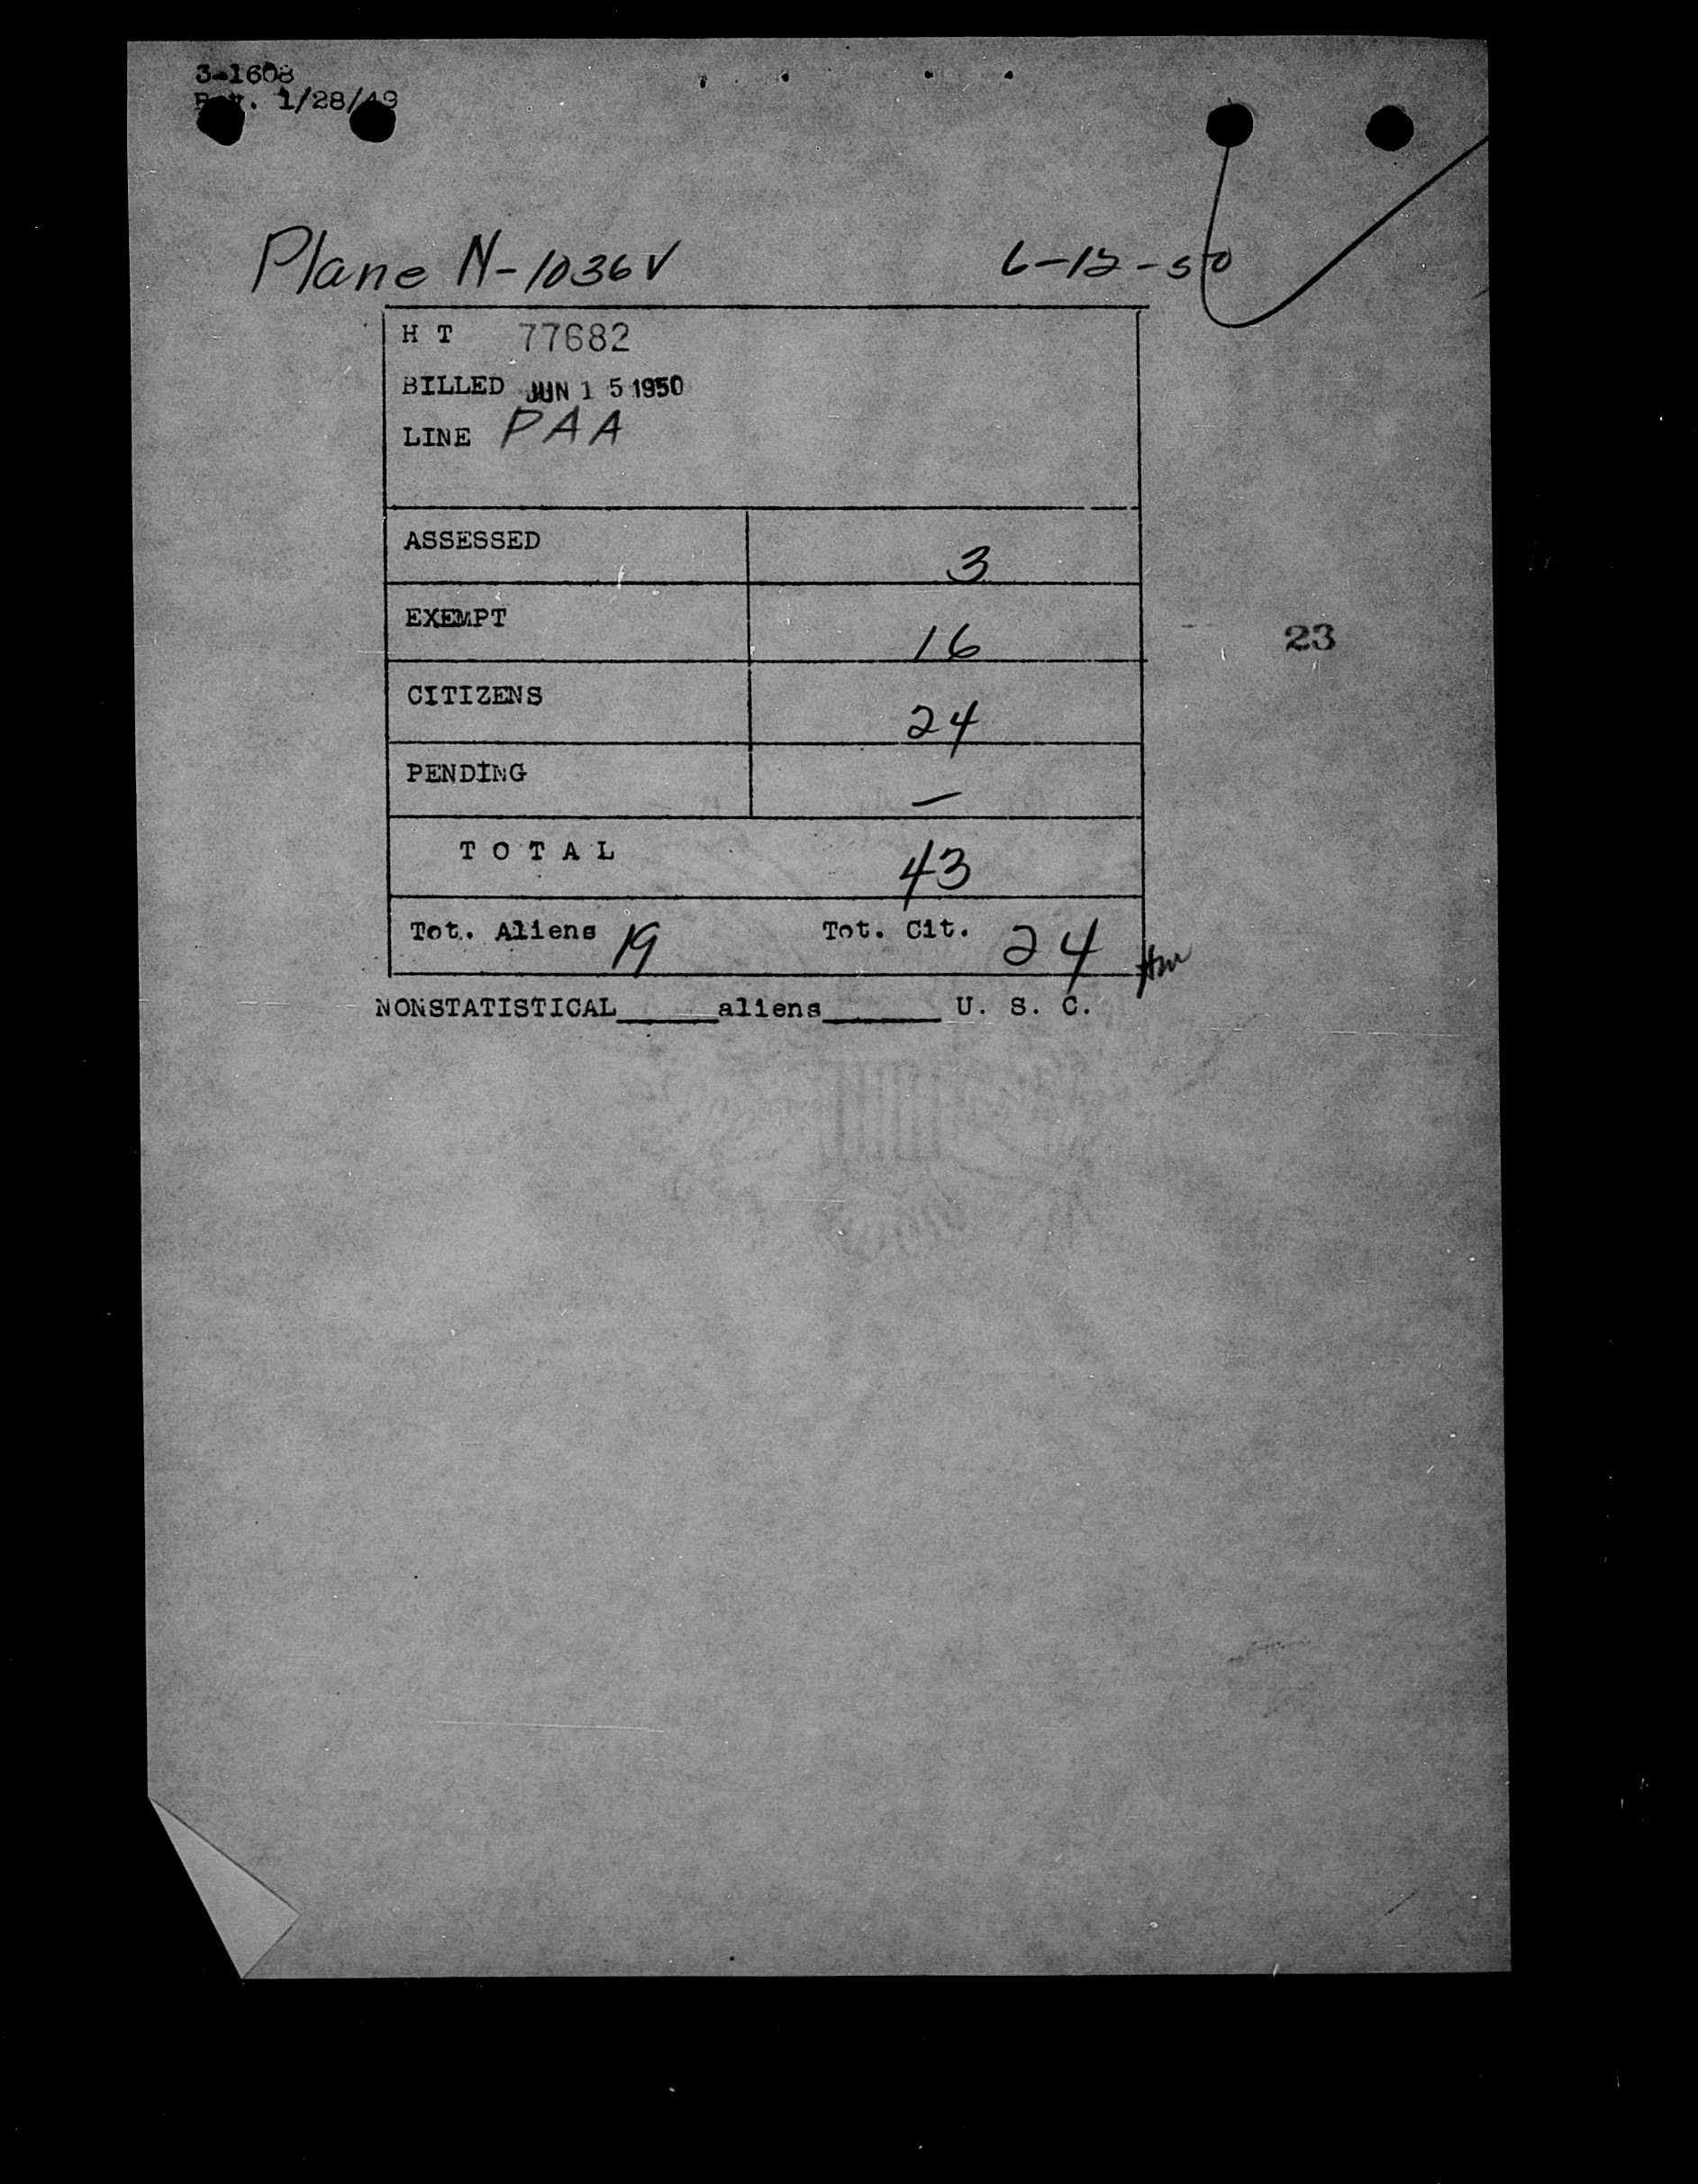 3-1608
Rev. 1/28/49
Plane N-1036V 6-12-50
H T 77682
BILLED JUN 15 1950
LINE PAA
ASSESSED 3
EXEMPT 16
23
CITIZENS 24
PENDING —
TOTAL 43
Tot. Aliens 19 Tot. Cit. 24
NONSTATISTICAL_____aliens______ U. S. C.